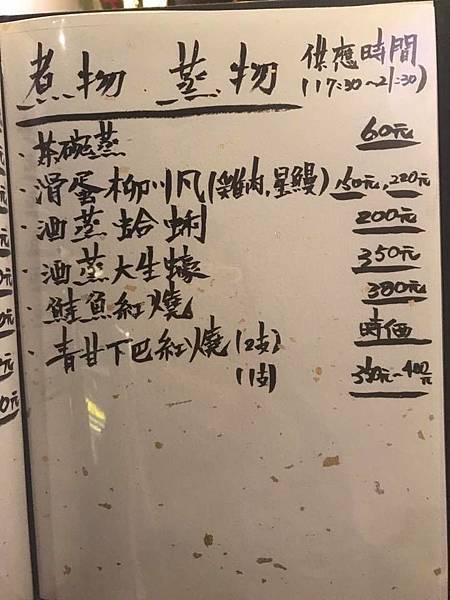 煮物 蒸物 供應時間
(17:30~21:30)
· 茶碗蒸 60元
· 滑蛋柳川风(雞肉,星鰻) 150元,220元
· 酒蒸蛤蜊 200元
· 酒蒸大生蠔 350元
· 鮭魚紅燒 380元
· 青甘下巴紅燒(2支) 時価
(1支) 350元~400元
元
0元
0元
元
0元